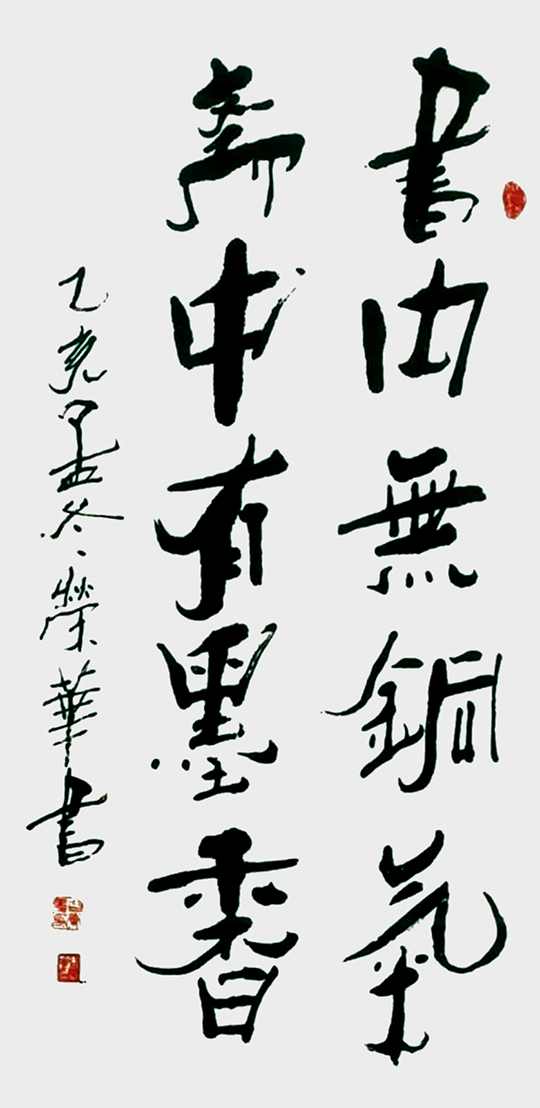 書内無銅氣
斋中有墨香
乙亥孟冬榮華書